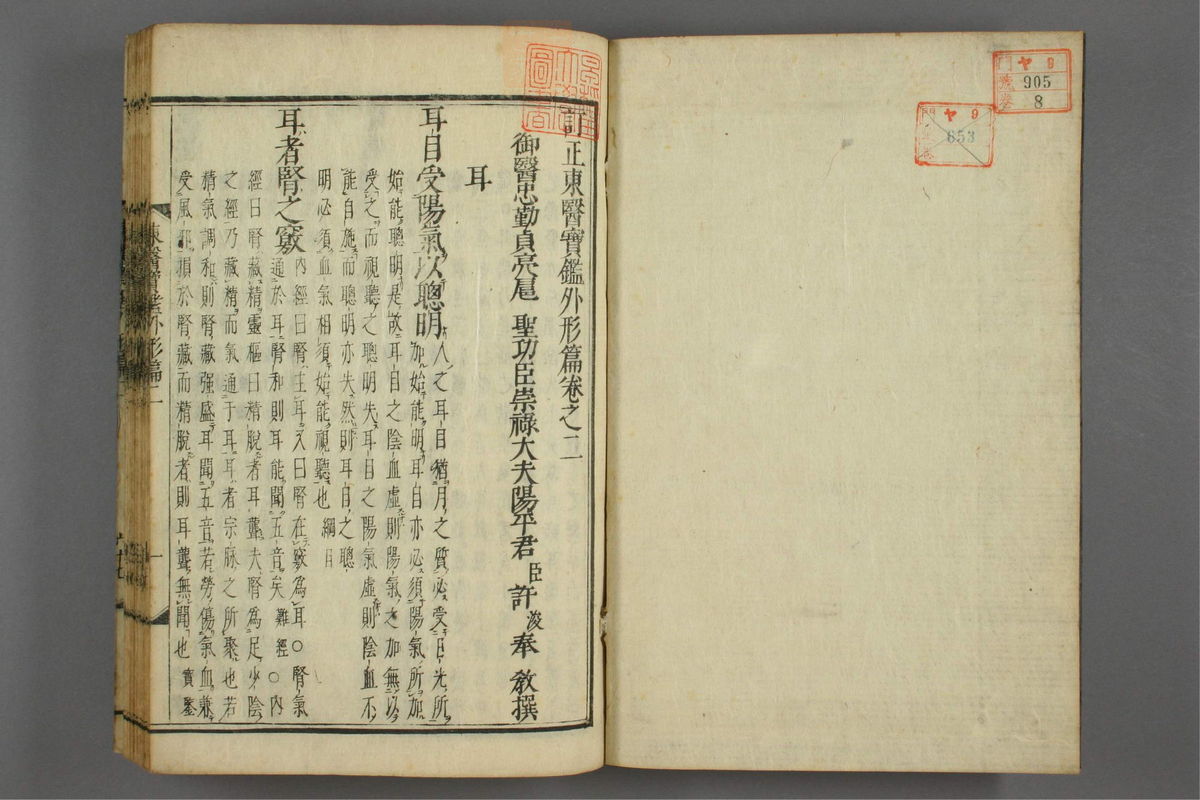 門 ヤ 9
號 905
卷 8
門 ヤ 9
653
訂正東醫寶鑑外形篇卷之二
御醫忠勤貞亮扈 聖功臣崇祿大夫陽平君 臣 許 浚 奉 敎撰
耳
耳目受陽氣以聰明 人之耳目猶月之質必受日光所
加始能明耳目亦必須陽氣所加
始能聰明是故耳目之陰血虛則陽氣之加無以
受之而視聽之聰明失耳目之陽氣虛則陰血不
能自施而聰明亦失然則耳目之聰
明必須血氣相須始能視聽也 綱目
耳者腎之竅 內經曰腎主耳又曰腎在竅爲耳○腎氣
通於耳腎和則耳能聞五音矣 難經 ○內
經曰腎藏精靈樞曰精脫者耳聾夫腎爲足少陰
之經乃藏精而氣通于耳耳者宗脉之所聚也若
精氣調和則腎藏强盛耳聞五音若勞傷氣血兼
受風邪損於腎藏而精脫者則耳聾無聞也 寶鑒
東醫寶鑑外形篇二
一